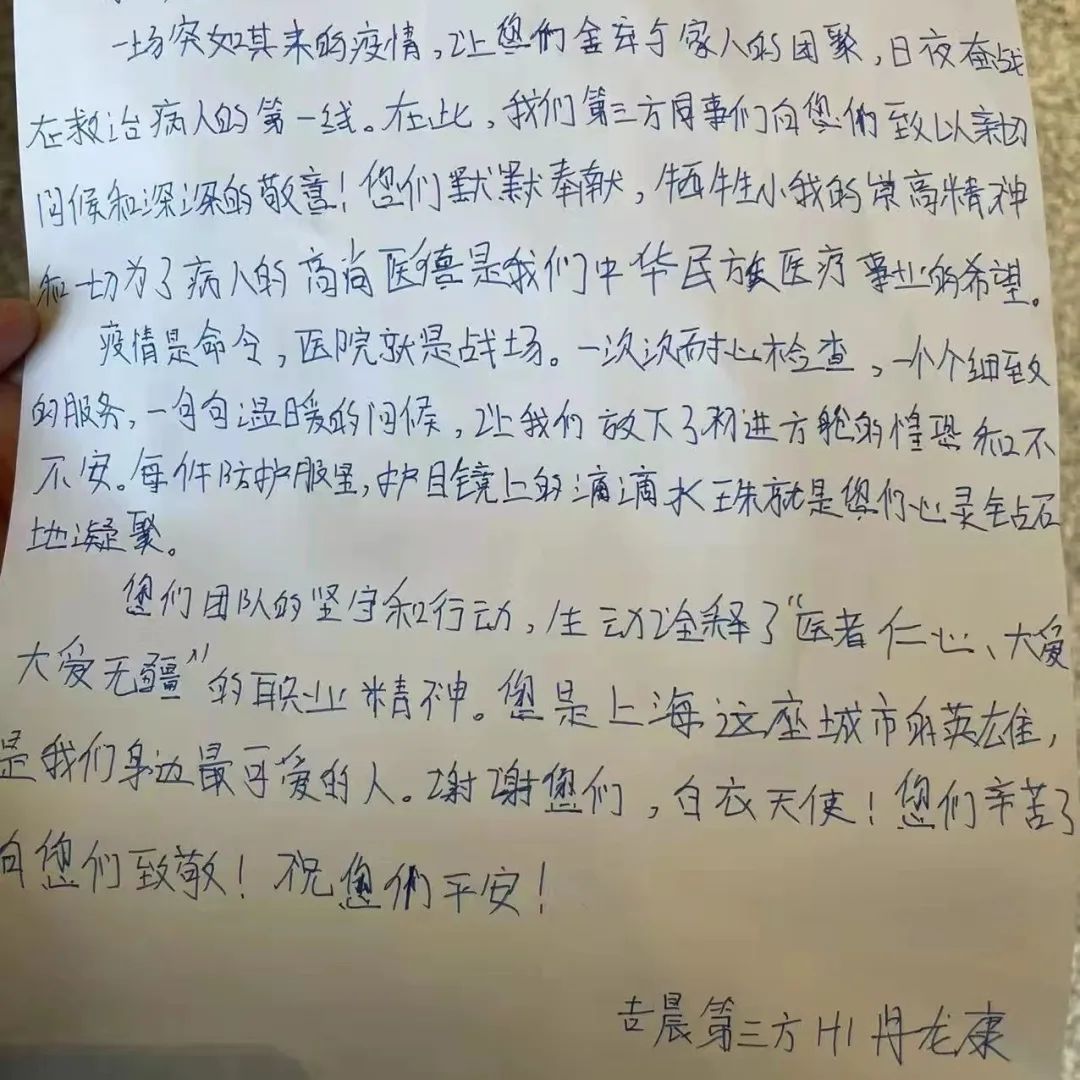 一场突如其来的疫情，让您们舍弃与家人的团聚，日夜奋战
在救治病人的第一线。在此，我们第三方同事们向您們致以亲切
问候和深深的敬意！您们默默奉献，牺牲小我的崇高精神
和一切为了病人的高尚医德是我们中华民族医疗事业的希望。
疫情是命令，医院就是战场。一次次耐心检查，一个个细致
的服务，一句句温暖的问候，让我们放下了初进方舱的惶恐和不
不安。每件防护服里，护目镜上的滴滴水珠就是您们心灵钻石
地凝聚。
您们团队的坚守和行动，生动诠释了“医者仁心、大爱
大爱无疆”的职业精神。您是上海这座城市的英雄，
是我们身边最可爱的人。谢谢您们，白衣天使！您们辛苦了
向您们致敬！祝您們平安！
吉晨第三方H1 丹龙康